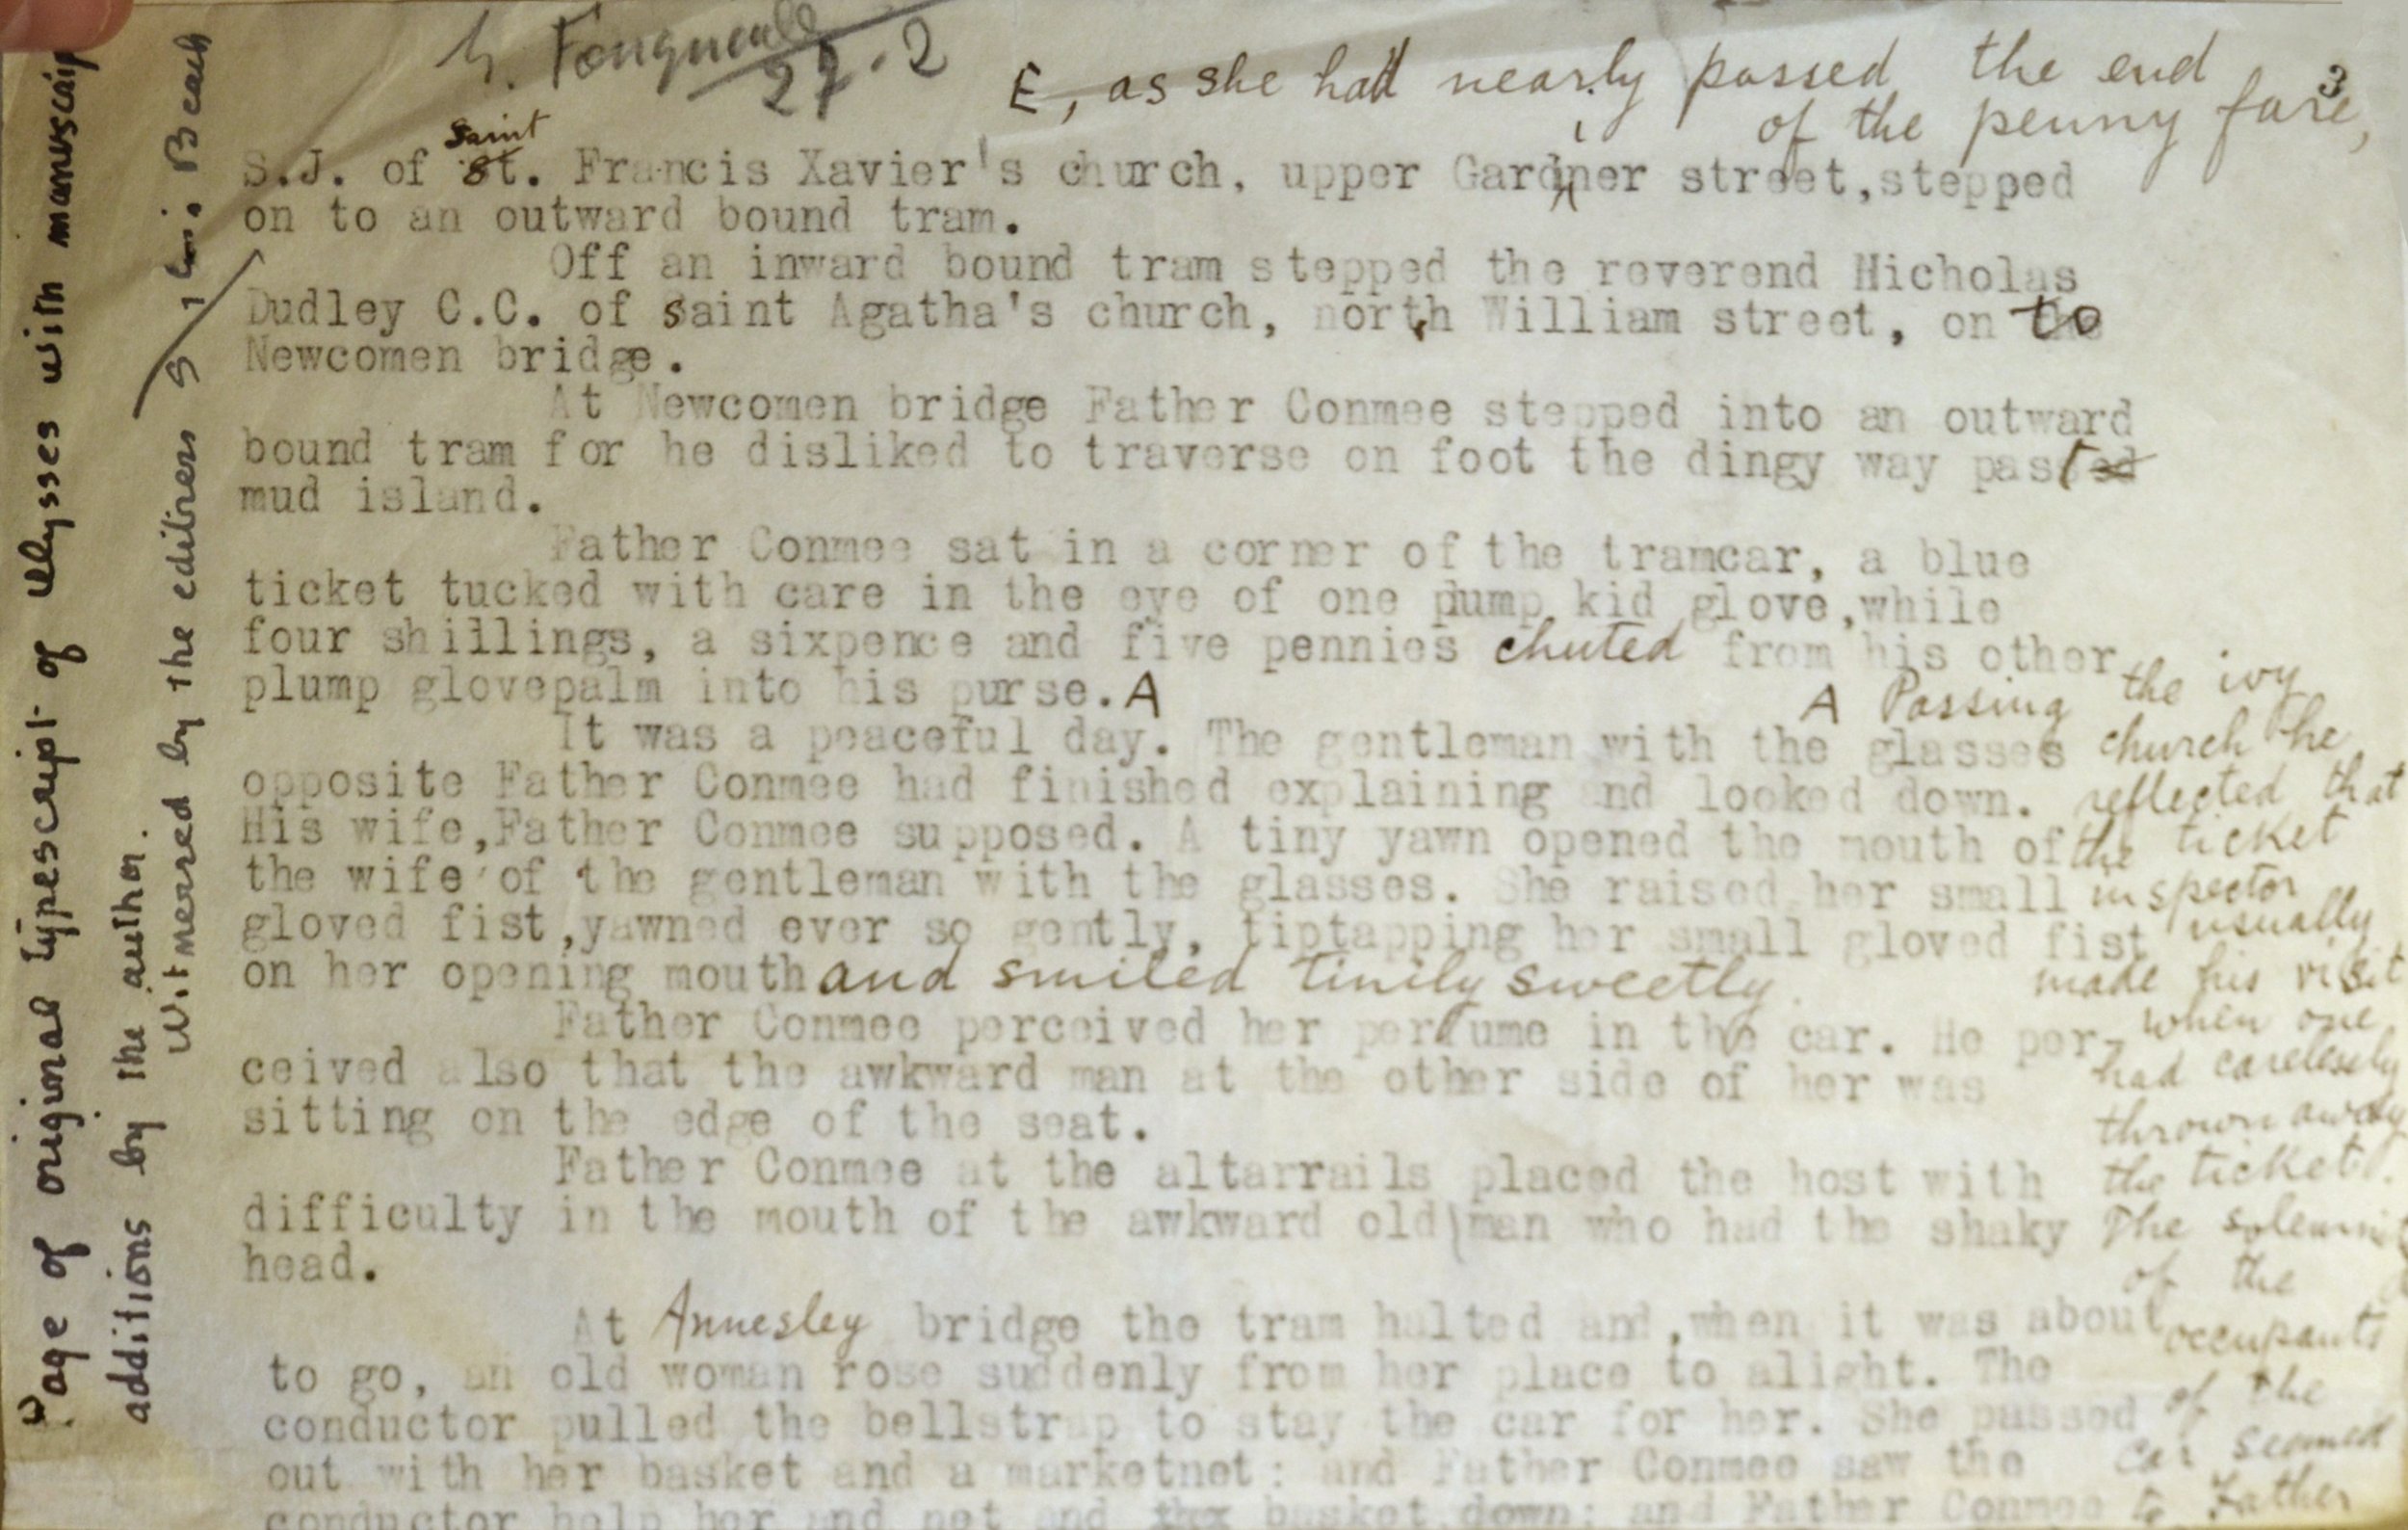 27.2
E, as she had nearly passed the end
of the penny fare,
3
Saint
S.J. of St. Francis Xavier's church, upper Gardiner street, stepped
on to an outward bound tram.
Off an inward bound tram stepped the reverend Nicholas
Dudley C.C. of saint Agatha's church, north William street, on to
Newcomen bridge.
At Newcomen bridge Father Conmee stepped into an outward
bound tram for he disliked to traverse on foot the dingy way past
mud island.
Father Conmee sat in a corner of the tramcar, a blue
ticket tucked with care in the eye of one plump kid glove, while
four shillings, a sixpence and five pennies chuted from his other
plump glovepalm into his purse. A
It was a peaceful day. The gentleman with the glasses
opposite Father Conmee had finished explaining and looked down.
His wife, Father Conmee supposed. A tiny yawn opened the mouth of
the wife of the gentleman with the glasses. She raised her small
gloved fist, yawned ever so gently, tiptapping her small gloved fist
on her opening mouth and smiled tinily sweetly.
Father Conmee perceived her perfume in the car. He per-
ceived also that the awkward man at the other side of her was
sitting on the edge of the seat.
Father Conmee at the altarrails placed the host with
difficulty in the mouth of the awkward old man who had the shaky
head.
At Annesley bridge the tram halted and, when it was about
to go, an old woman rose suddenly from her place to alight. The
conductor pulled the bellstrap to stay the car for her. She passed
out with her basket and a marketnet: and Father Conmee saw the
conductor help her and net and basket down: and Father Conmee
A Passing the ivy
church he
reflected that
the ticket
inspector
usually
made his visit
when one
had carelessly
thrown away
the ticket.
The
of the
occupants
of the
car seemed
to Father
Page of original typescript of Ulysses with manuscrip
additions by the author.
Witnessed by the editress Sylvia Beach